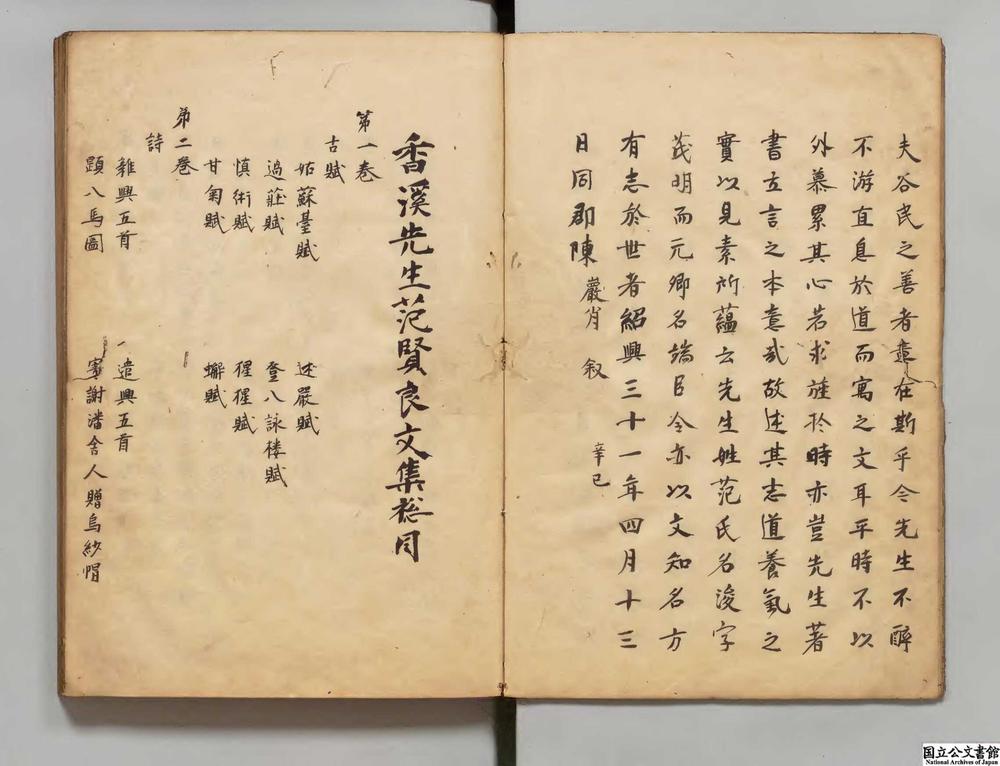 夫谷民之善者意在斯乎今先生不醉
不游宜息於道而寓之文耳平時不以
外慕累其心若求旌於時亦豈先生著
書立言之本意哉故述其志道養氣之
實以見素所蘊云先生姓范氏名浚字
茂明而元卿名端臣今亦以文知名方
有志於世者紹興三十一年四月十三
日同郡陳巖肖叙 辛巳
香溪先生范賢良文集総目
第一巻
古賦
姑蘇臺賦 述嚴賦
過莊賦 登八詠楼賦
慎術賦 猩猩賦
甘菊賦 蠏賦
第二巻
詩
雜興五首 遣興五首
題八馬圖 謝潘舎人贈烏紗帽
国立公文書館
National Archives of Japan